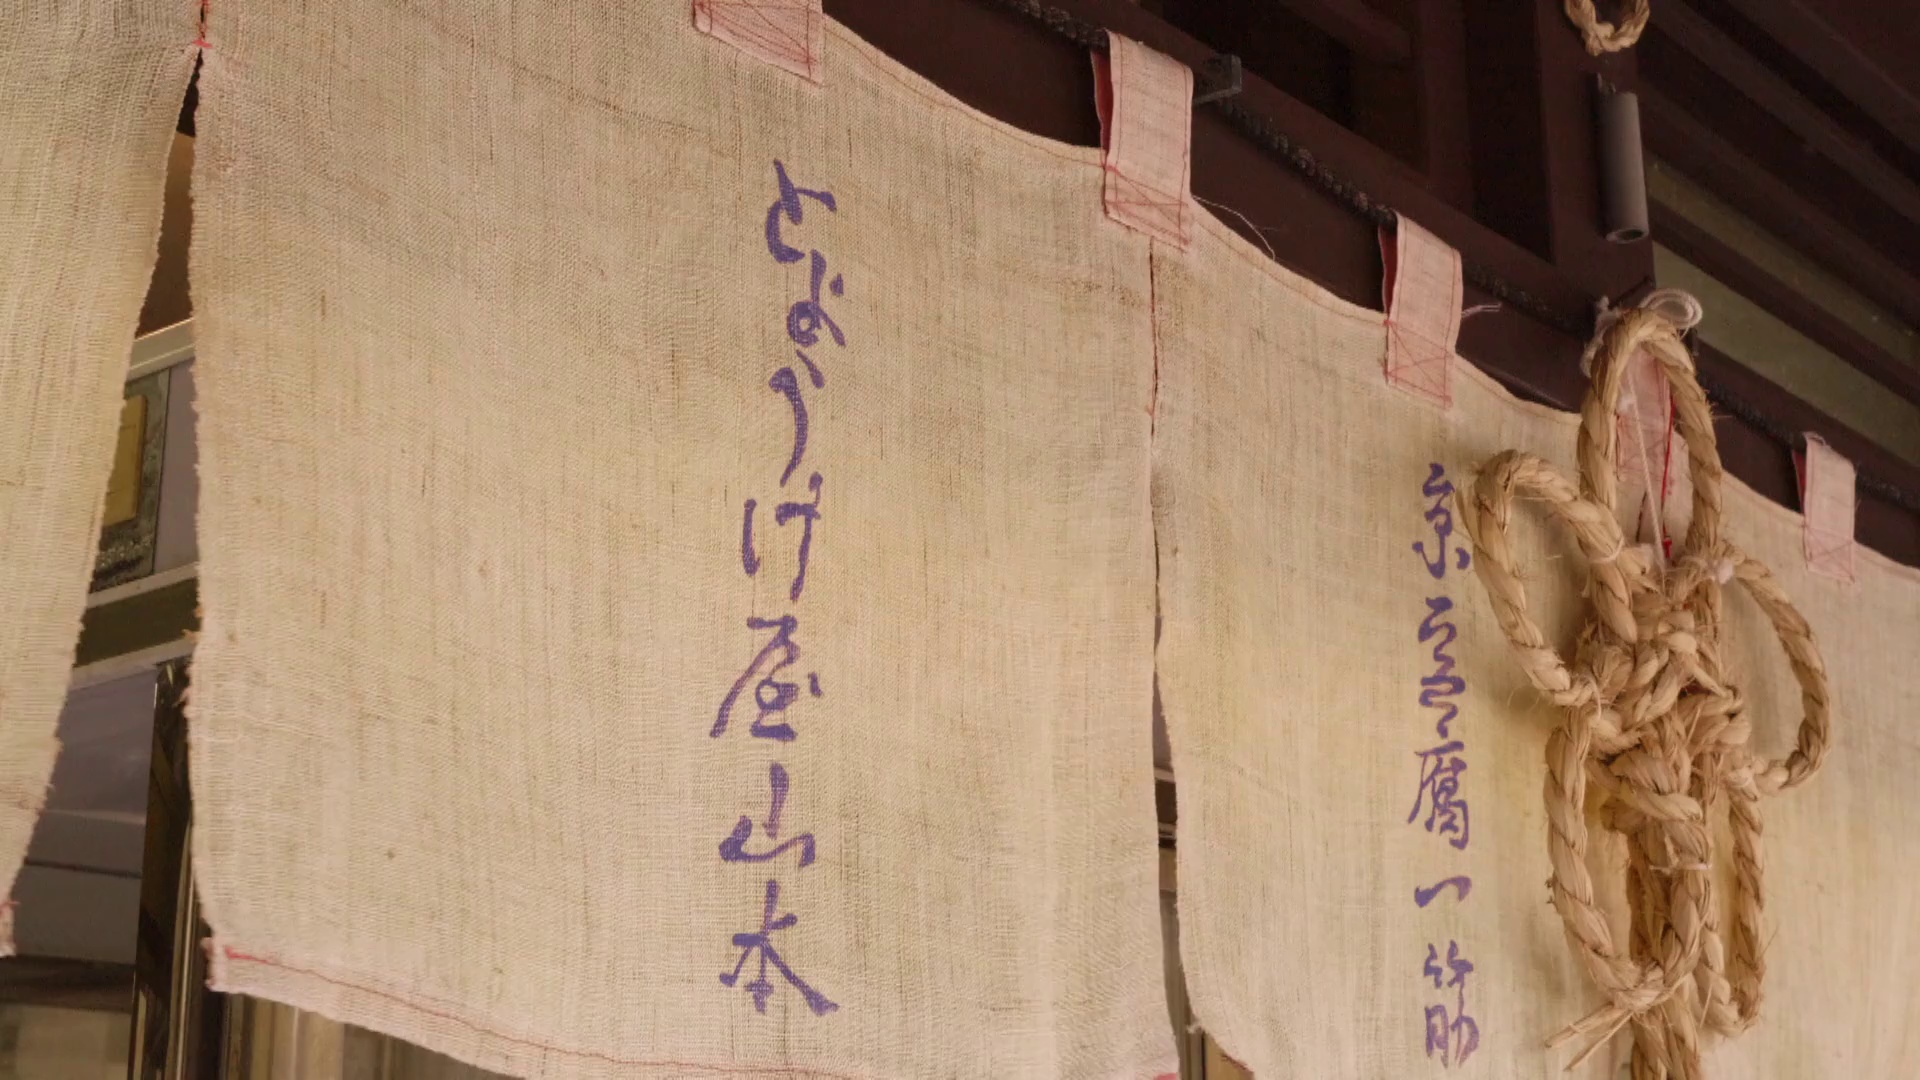 京豆腐一筋
とようけ屋山本